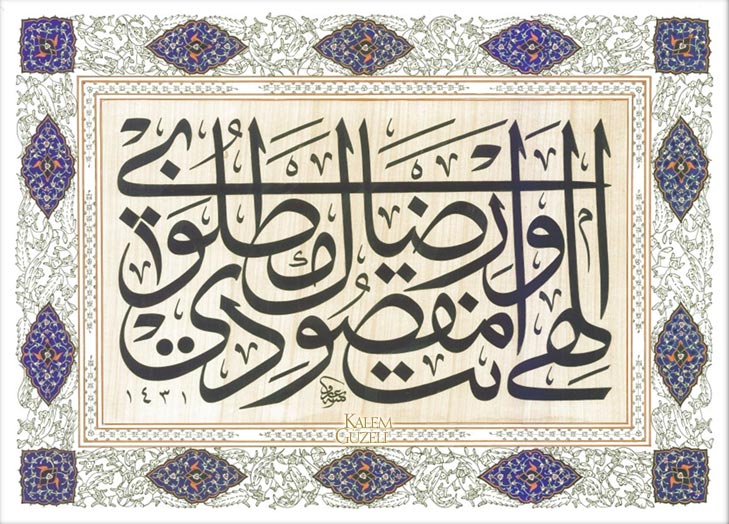 الهي انت مقصودي ورضاك مطلوبي
١٤٣١
KALEM
GÜZELİ